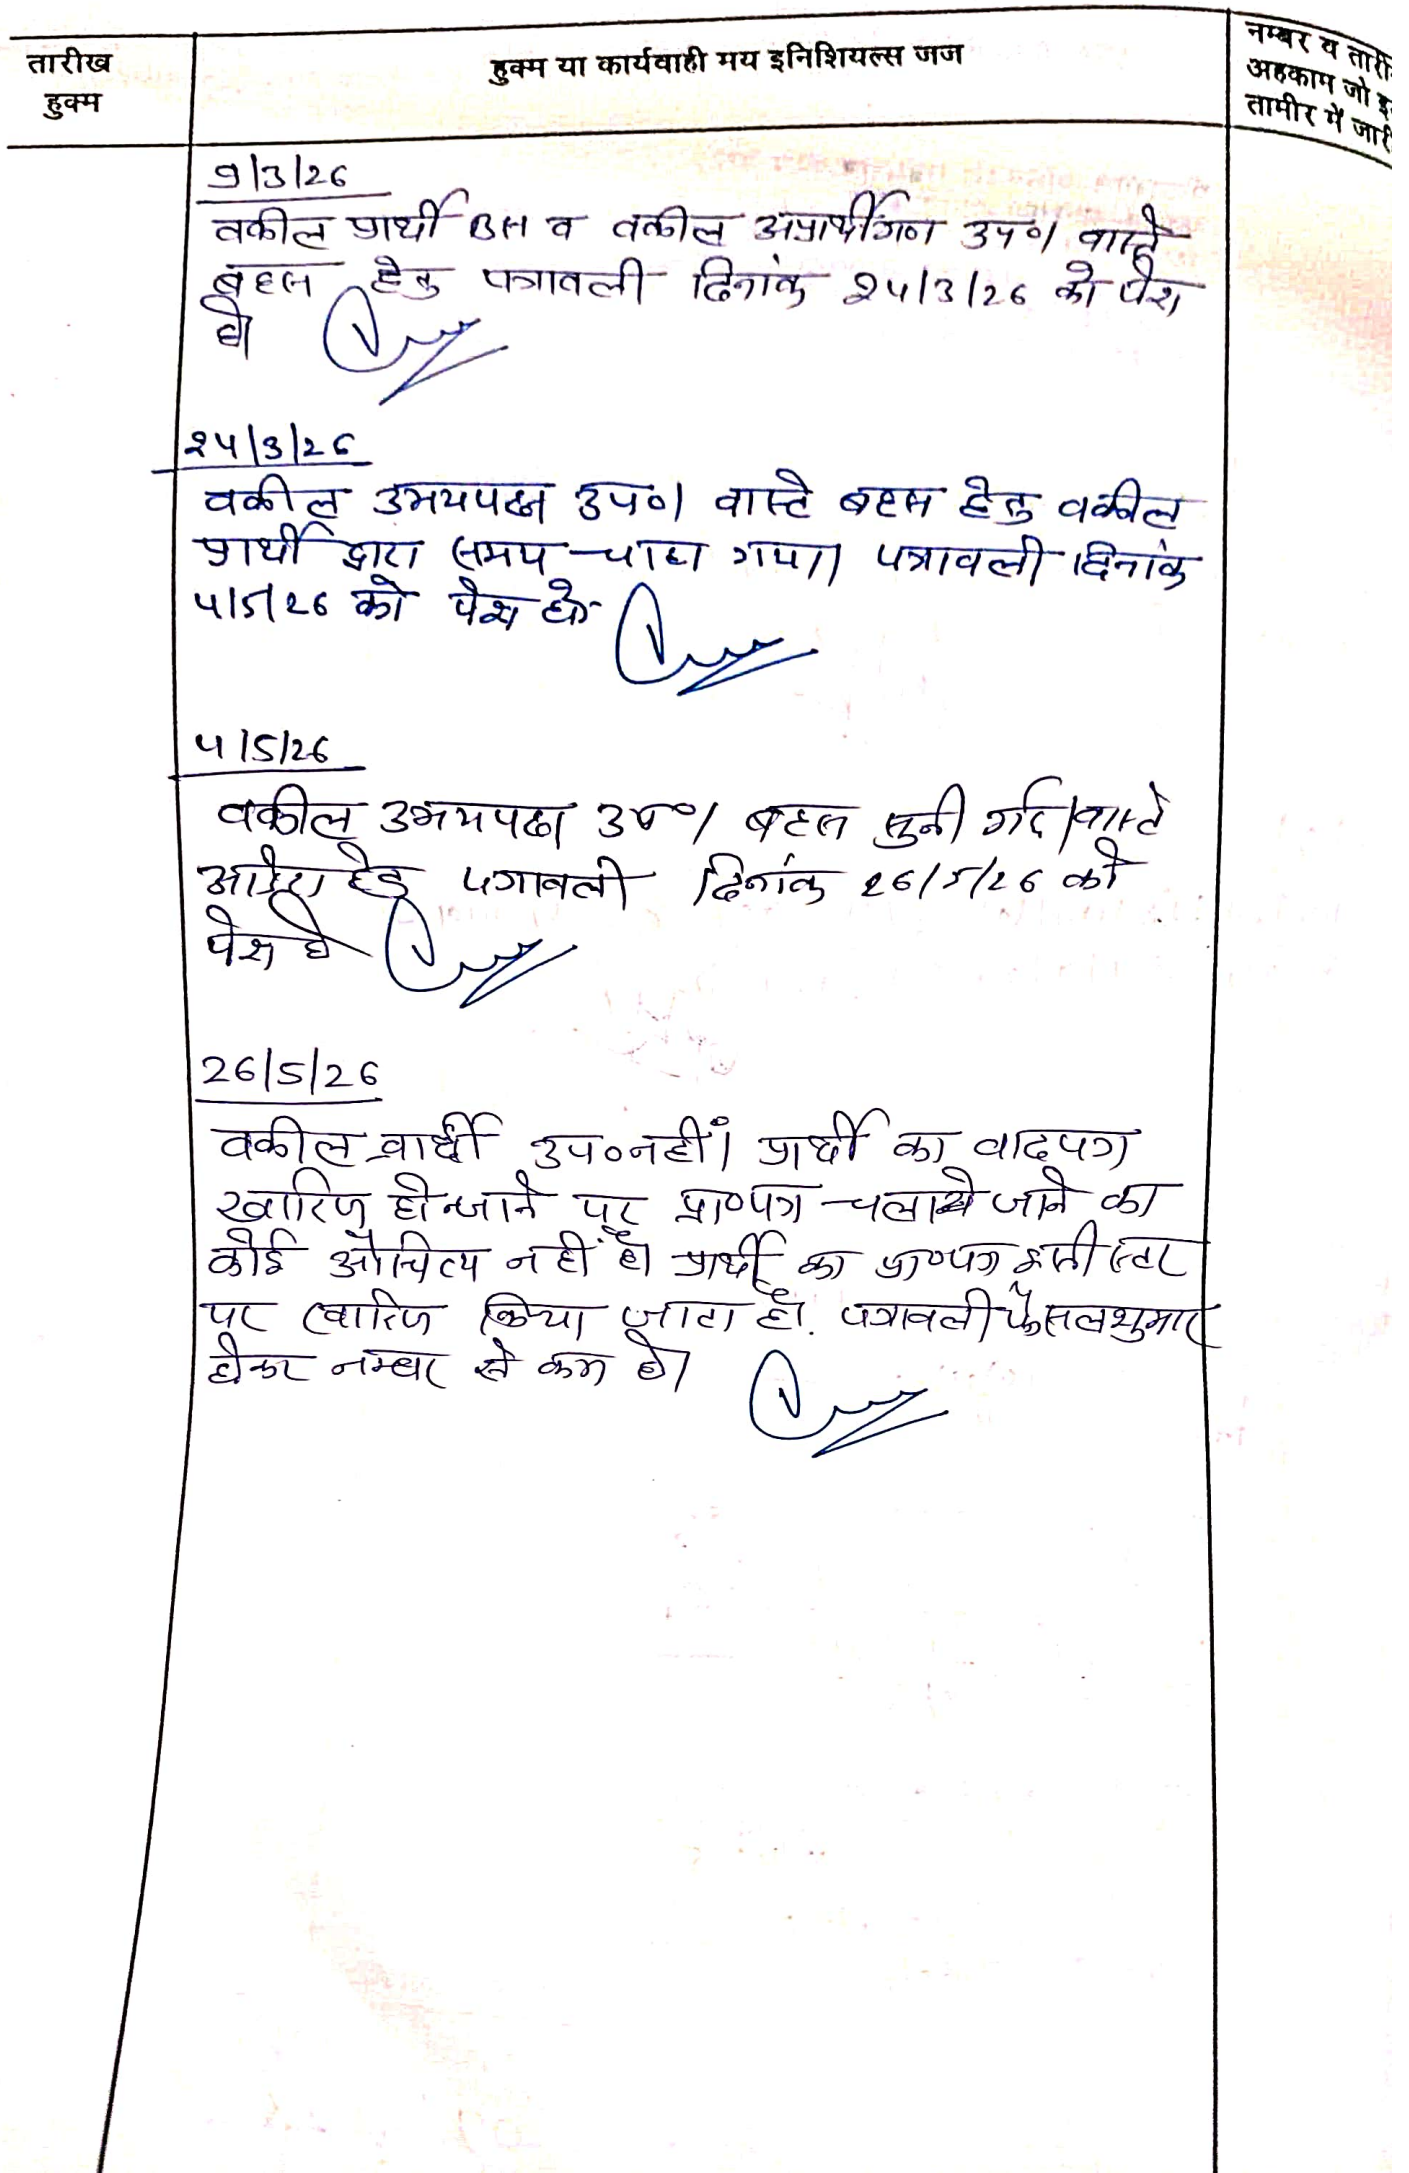 तारीख
हुक्म
हुक्म या कार्यवाही मय इनिशियल्स जज
नम्बर व तारी
अहकाम जो इ
तामीर में जारी
9/3/26
वकील प्रार्थी BH व वकील अप्रार्थीगण उप०। वास्ते
बहस हेतु पत्रावली दिनांक 24/3/26 को पेश
हो।
24/3/26
वकील उभयपक्ष उप०। वास्ते बहस हेतु वकील
प्रार्थी द्वारा समय चाहा गया। पत्रावली दिनांक
4/5/26 को पेश हो
4/5/26
वकील उभयपक्ष उप०। बहस सुनी गई। वास्ते
आदेश हेतु पत्रावली दिनांक 26/5/26 को
पेश हो
26/5/26
वकील प्रार्थी उप० नहीं। प्रार्थी का वादपत्र
खारिज हो जाने पर प्रा०पत्र चलाये जाने का
कोई औचित्य नहीं है। प्रार्थी का प्रा०पत्र इसी स्तर
पर खारिज किया जाता है। पत्रावली फैसलशुमार
होकर नम्बर से कम हो।